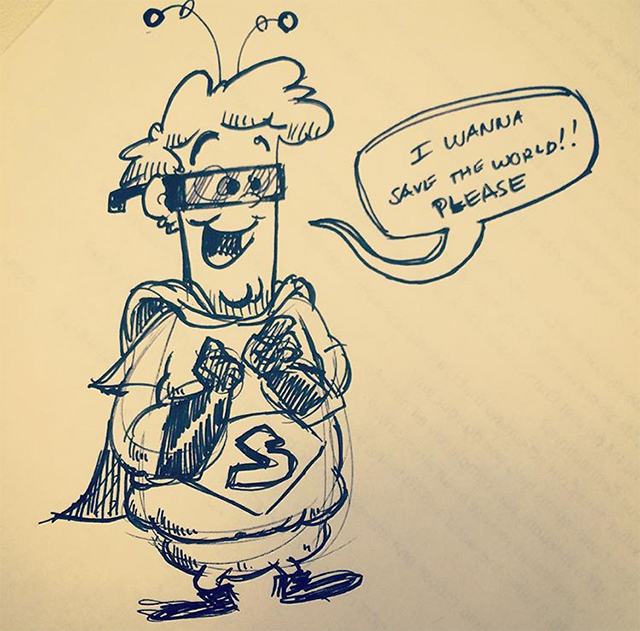 I WANNA
SAVE THE WORLD!!
PLEASE
S